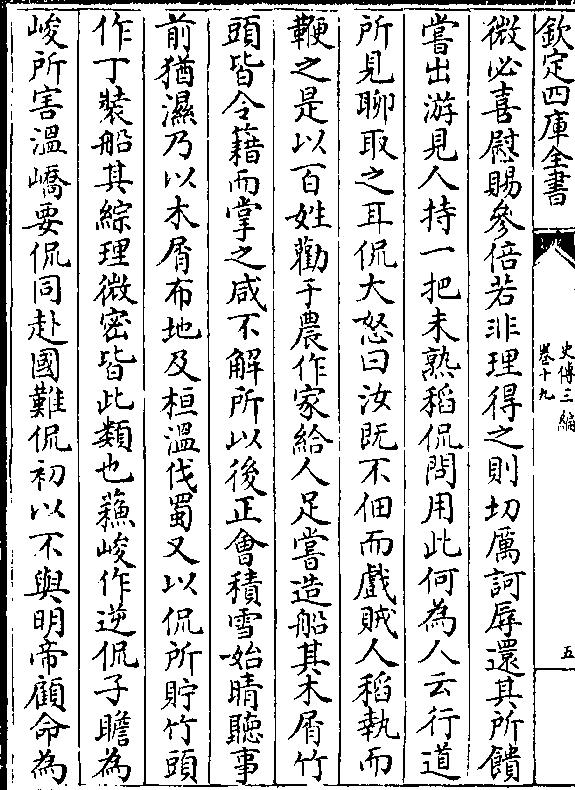 欽定四庫全書
史傳三編
卷十九
五
微必喜慰賜參倍若非理得之則切厲訶辱還其所饋
嘗出游見人持一把未熟稻侃問用此何為人云行道
所見聊取之耳侃大怒曰汝既不佃而戲賊人稻執而
鞭之是以百姓勸于農作家給人足嘗造船其木屑竹
頭皆令籍而掌之咸不解所以後正會積雪始晴聽事
前猶濕乃以木屑布地及桓溫伐蜀又以侃所貯竹頭
作丁裝船其綜理微密皆此類也蘓峻作逆侃子瞻為
峻所害溫嶠要侃同赴國難侃初以不與明帝顧命為